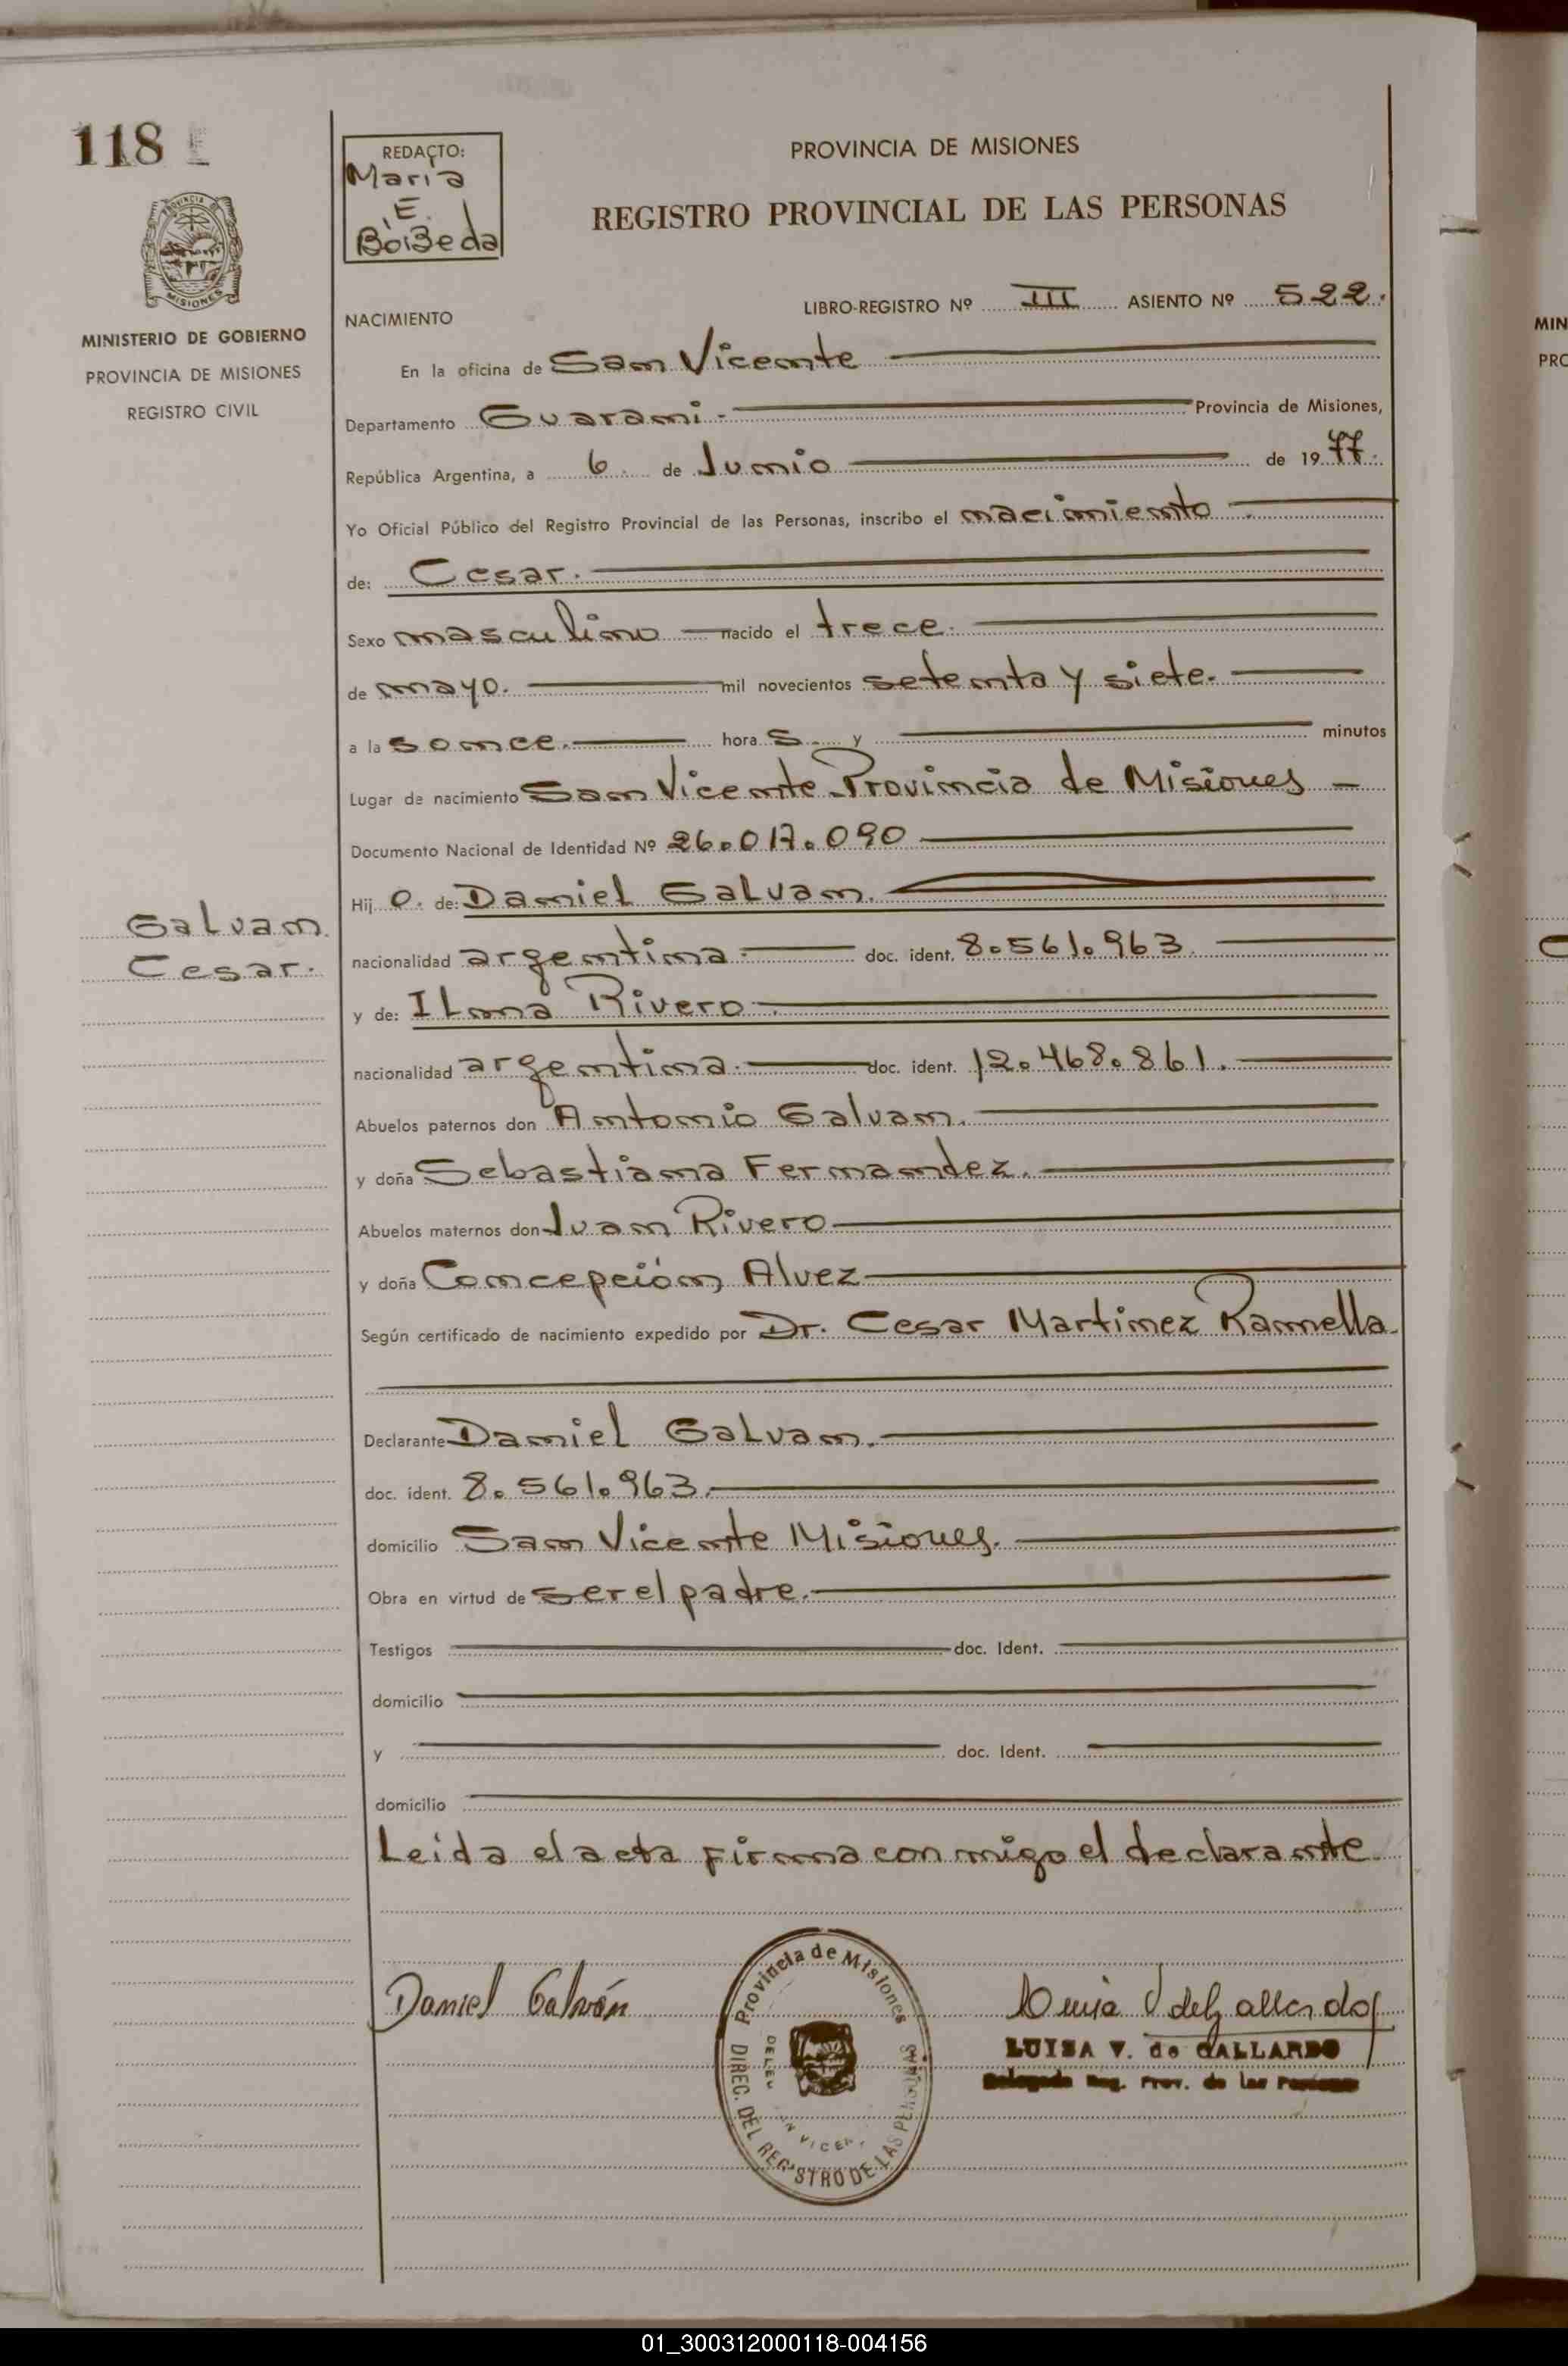 118
REDACTO:
Maria
E.
Boiseda
PROVINCIA DE MISIONES
REGISTRO PROVINCIAL DE LAS PERSONAS
MINISTERIO DE GOBIERNO
PROVINCIA DE MISIONES
REGISTRO CIVIL
LIBRO-REGISTRO Nº III ASIENTO Nº 522.
NACIMIENTO
En la oficina de San Vicente
Departamento Guarani. Provincia de Misiones,
República Argentina, a 6. de Junio de 1977.
Yo Oficial Público del Registro Provincial de las Personas, inscribo el nacimiento
de: Cesar.
Sexo masculino nacido el trece.
de mayo. mil novecientos setenta y siete.
a la s once. hora s y minutos
Lugar de nacimiento San Vicente Provincia de Misiones
Documento Nacional de Identidad Nº 26.017.090
Hij o. de: Daniel Galvan.
nacionalidad argentina. doc. ident. 8.561.963.
y de: Ilma Rivero.
nacionalidad argentina. doc. ident. 12.468.861.
Abuelos paternos don Antonio Galvan.
y doña Sebastiana Fernandez.
Abuelos maternos don Juan Rivero
y doña Concepción Alvez
Según certificado de nacimiento expedido por Dr. Cesar Martinez Ramella.
Declarante Daniel Galvan.
doc. ident. 8.561.963.
domicilio San Vicente Misiones.
Obra en virtud de ser el padre.
Testigos doc. Ident.
domicilio
y doc. Ident.
domicilio
Leida el acta firma con migo el declarante.
Galvan
Cesar.
Daniel Galván
Provincia de Misiones
DIREC. DEL REGISTRO DE LAS PERSONAS
Luisa V de Gallardo
LUISA V. de GALLARDO
Delegada Reg. Prov. de las Personas
MIN
PRO
C
01_300312000118-004156